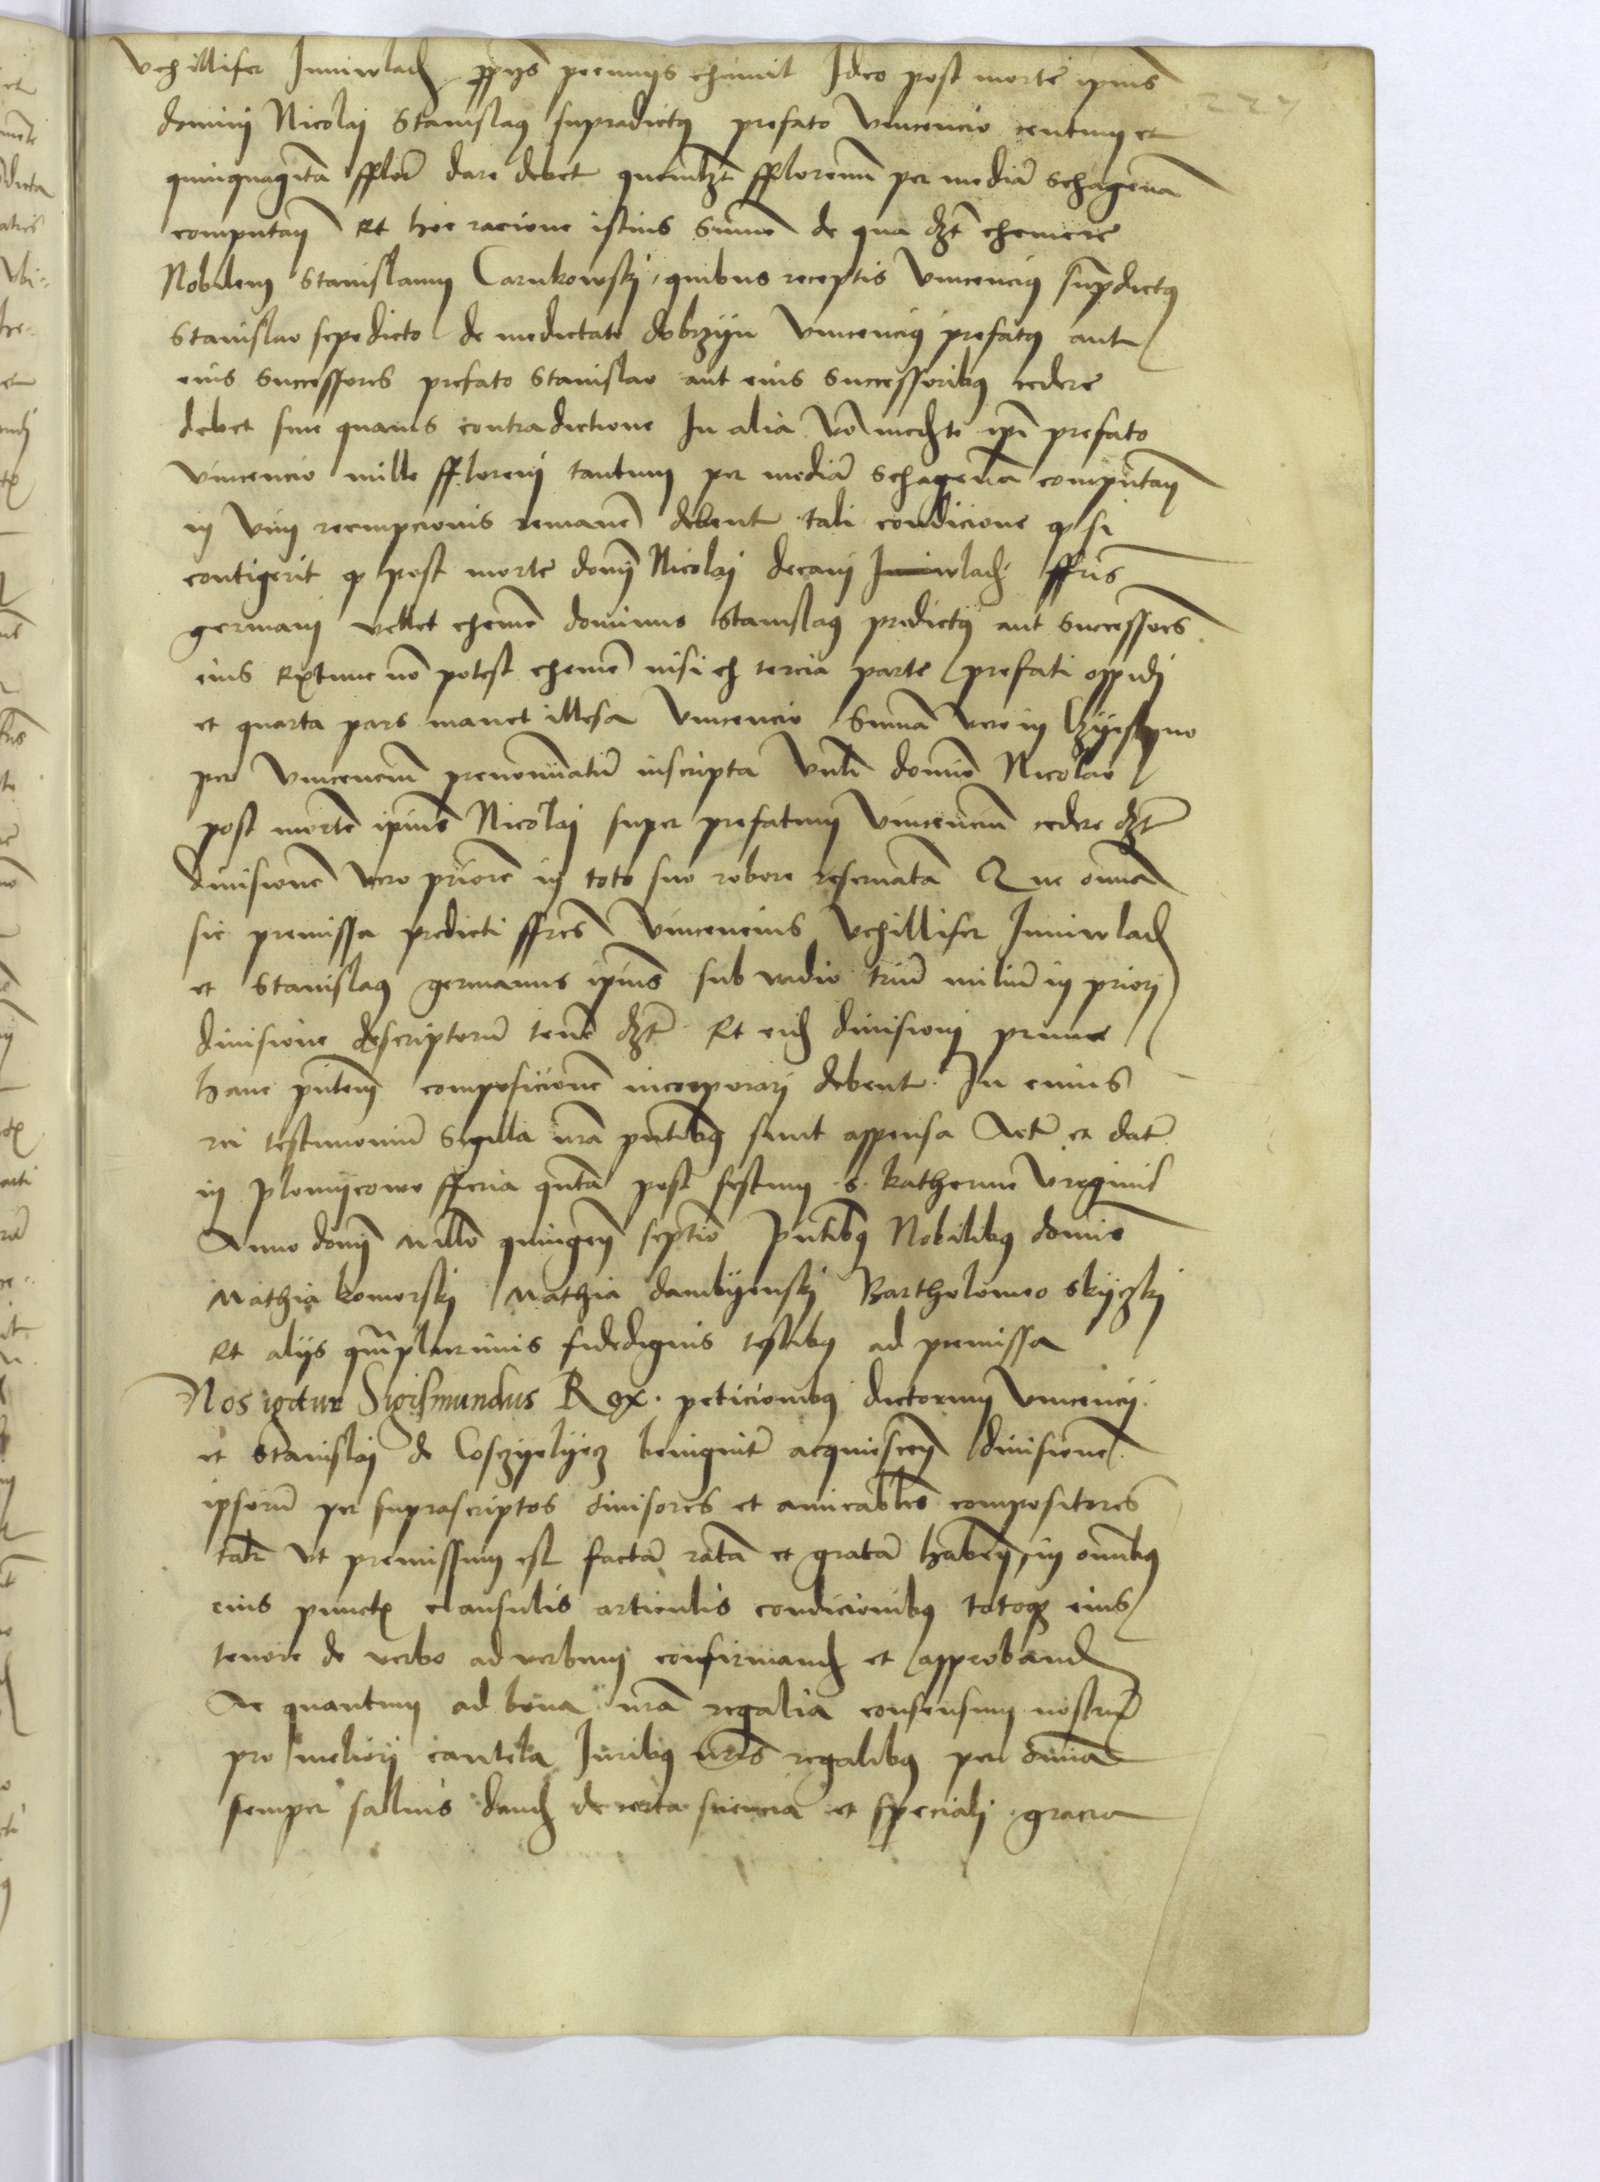 vexillifer Juniwladi ppijs pecunijs exemit Ideo post morte ipius
dominj Nicolaj Stanislaus supradictus prefato Vincencio centum et
quinquaginta fflor dare debet quemlzt fflorenum per media schagena
computan Et hoc racione istius Summe de qua dzt exemere
Nobilem Stanislaum Carnkowskj, quibus receptis Vincencius supdictus
Stanislao sepedicto de medietate dobrzyn Vincencius prefatus aut
eius successores prefato Stanislao aut eius successoribus cedere
debet sine quauis contradictione In alia vo medte ipi prefato
Vincencio mille fflorenj tantum per media schagena computan
in vim reempcionis remane debent tali condicione q si
contigerit q post morte domi Nicolaj decani Juniwladi ffris
germanj vellet exeme dominus Stanislaus predictus aut successores
eius Extunc no potest exeme nisi ex tercia parte prefati oppidj
et quarta pars manet illesa Vincencio Summa vero in
per Vincenciu prenominatu inscripta Vnli domino Nicolao
post morte ipius Nicolaj super prefatum Vincenciu cedere dzt
diuisione vero priore in toto suo robore reseruata Que omnia
sic premissa predicti ffres Vincencius vexillifer Juniwladi
et Stanislaus germanus ipius sub vadio triu miliu in priorj
diuisione descriptoru tene dzt Et eid diuisionj prime
hanc pntem composicione incorporarj debent. In cuius
rei testimoniu Sigilla nra pntibus sunt appensa Actu et datu
in plomijcowo fferia qnta post festum S. katherine virginis
Anno domi Millo quingen septio Pntibus Nobilibus domis
Mathia komorskj Mathia dambyenskj Bartholomeo skijczkj
Et alijs qmplurimis fidedignis testibus ad premissa
Nos igitur Sigismundus Rex. peticionibus dictorum Vincencij
et Stanislaj de Coszyelyecz benignite acquiescen diuisione
ipsoru per suprascriptos diuisores et amicabiles compositores
talr vt premissum est facta rata et grata haben, in omnibus
eius punctis clausulis articulis condicionibus totoq eius
tenore de verbo ad verbum confirmand et approband
Ac quantum ad bona nra regalia consensum nostru
pro meliorj cautela Juribus nris regalibus per omnia
semper saluis dand de certa sciencia et specialj gracia